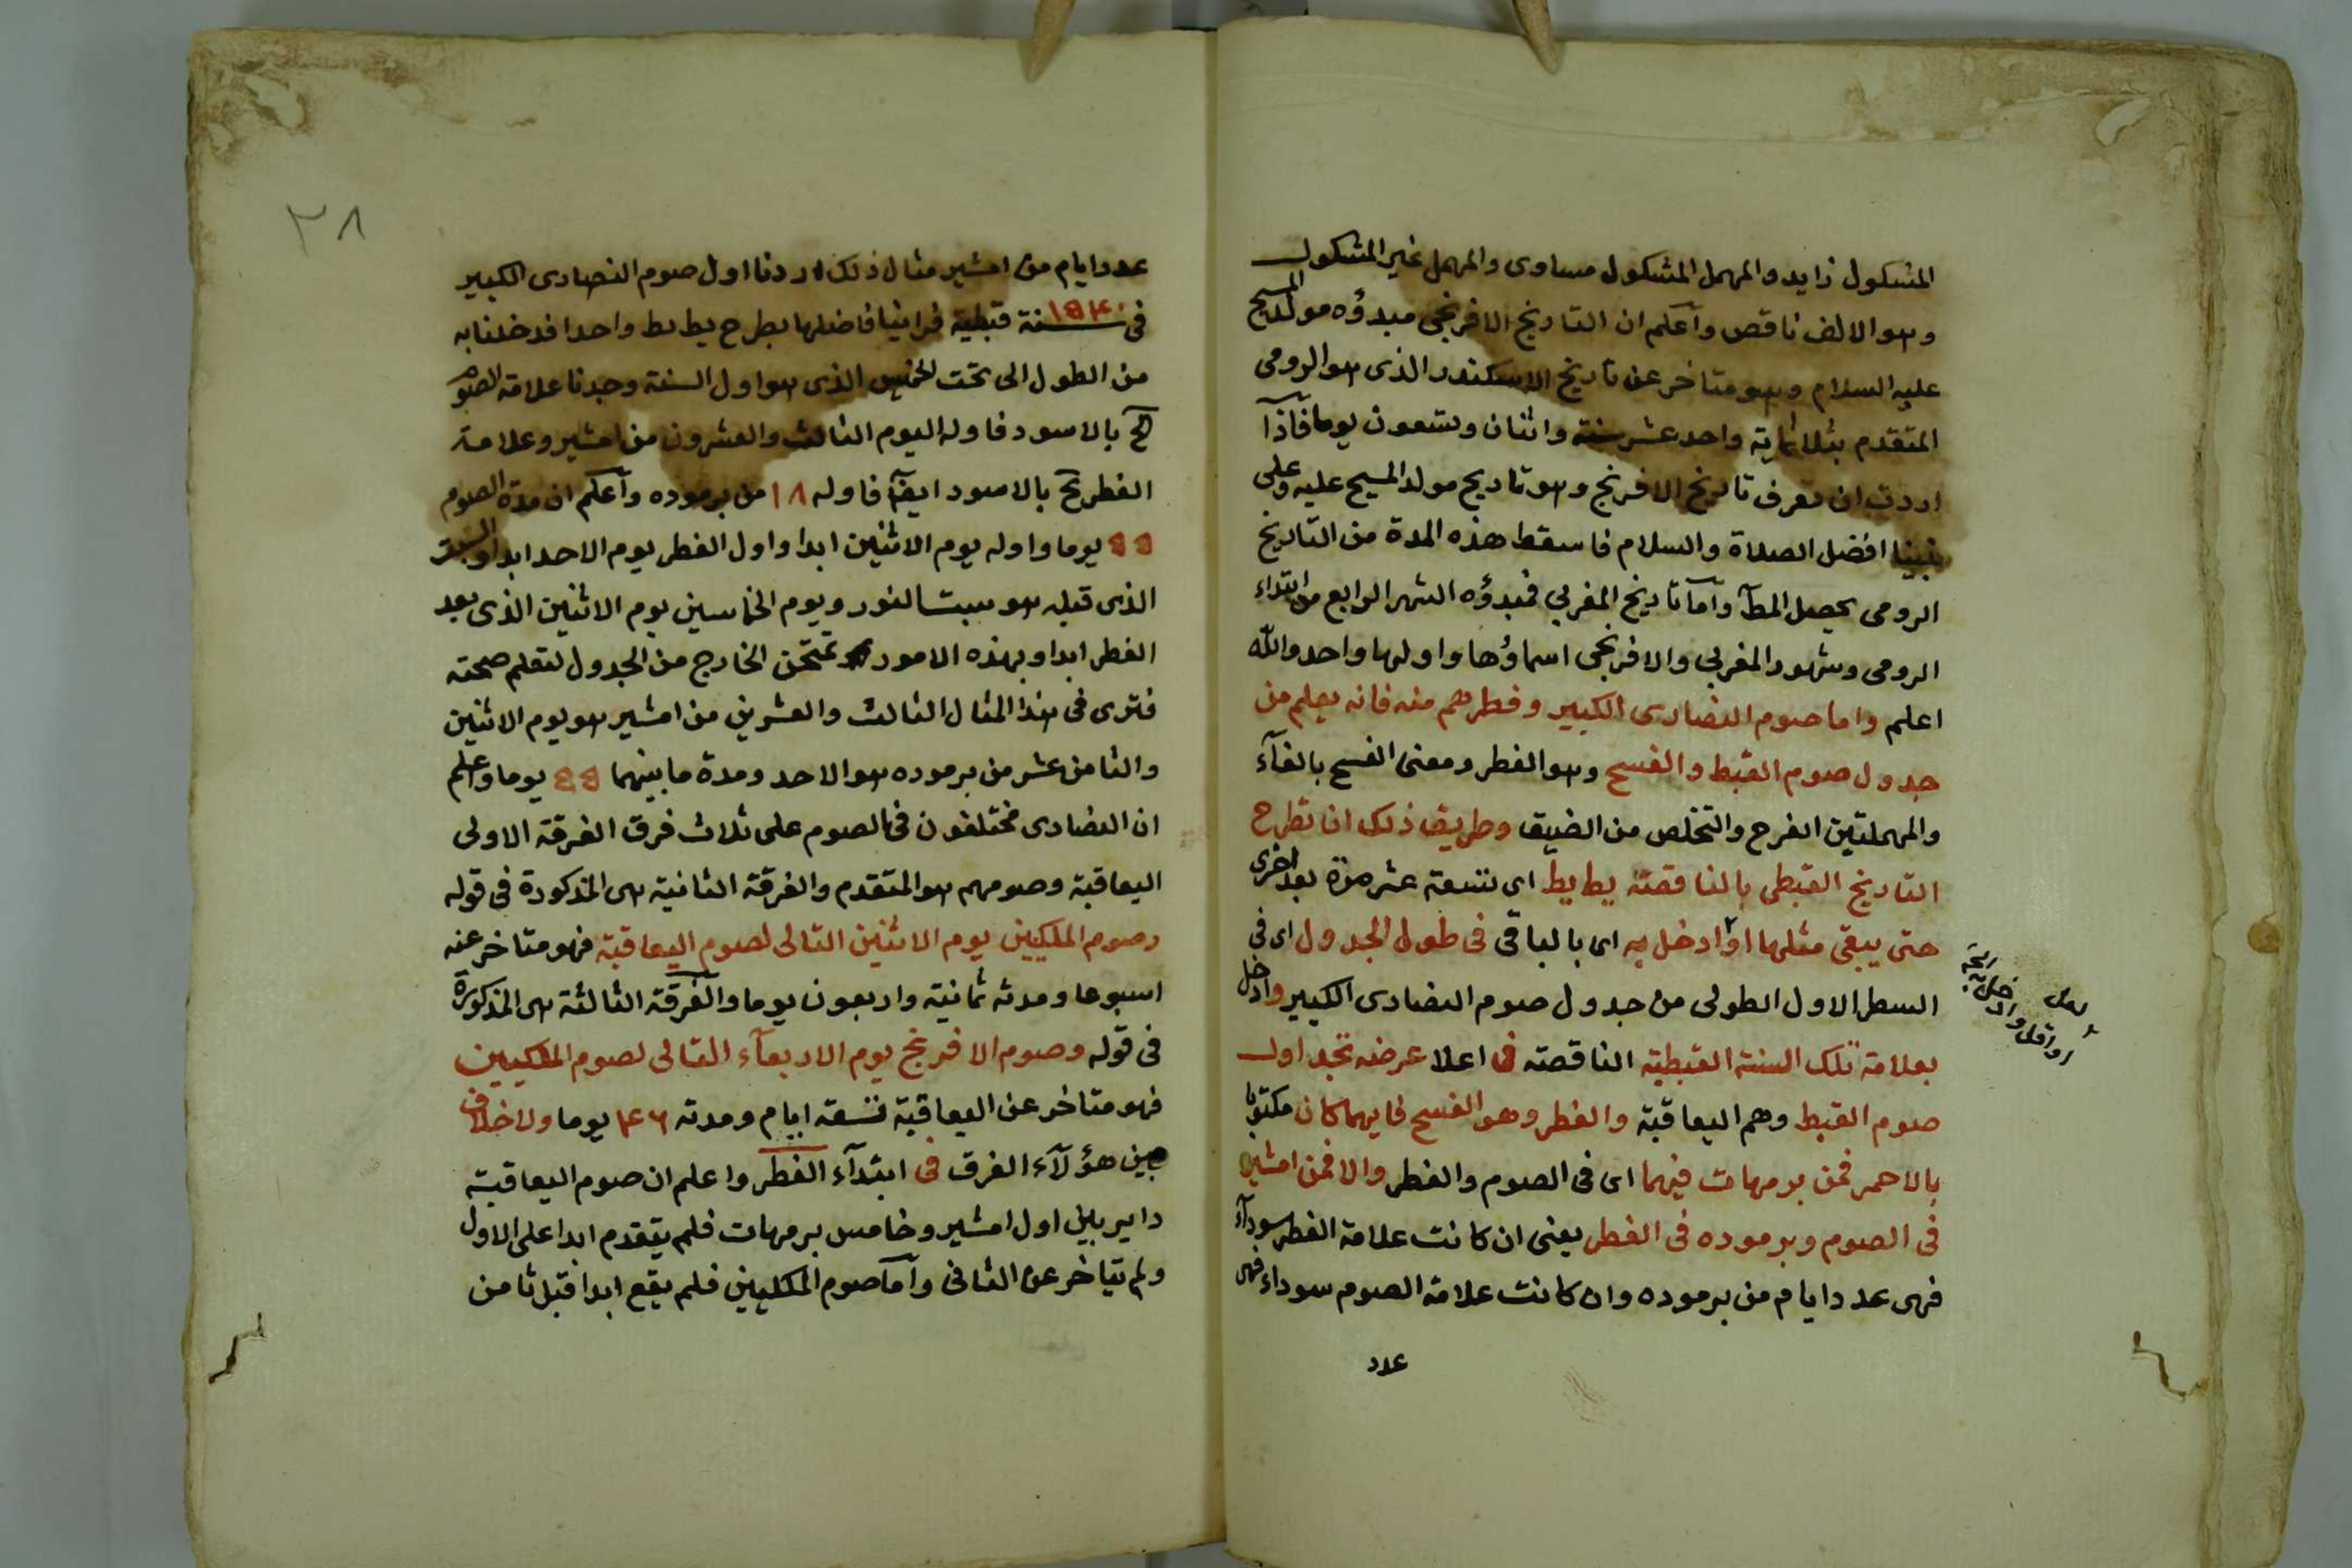 المشكول زايد والمهمل المشكول مساوى والمهمل غير المشكول
وهو الالف ناقص وآعلم ان التاريخ الافرنجى مبدؤه مولد المسيح
عليه السلام وهو متاخر عن تاريخ الاسكندر الذى هو الرومى
المتقدم بثلاثماية واحد عشر سنة واثنان وتسعون يوما فآذا
اردت ان تعرف تاريخ الافرنج وهو تاريخ مولد المسيح عليه وعلى
نبينا افضل الصلاة والسلام فاسقط هذه المدة من التاريخ
الرومى يحصل المطآ وآما تاريخ المغربي فمبدؤه الشهر الرابع من ابتداء
الرومى وشهور المغربي والافرنجى اسماؤها واولها واحد والله
اعلم واما صوم النصارى الكبير وفطرهم منه فانه يعلم من
جدول صوم القبط والفسح وهو الفطر ومعنى الفسح بالفآء
والمهملتين الفرح والتخلص من الضيق وطريق ذلك ان تطرح
التاريخ القبطى بالناقصة يط يط اى تسعة عشر مرة بعد اخرى
حتى يبقى مثلها او ادخل به اى بالباقى فى طول الجدول اى فى
السطر الاول الطولى من جدول صوم النصارى الكبير وادخل
بعلامة تلك السنة القبطية الناقصة فى اعلا عرضه تجد اول
صوم القبط وهم اليعاقبة والفطر وهو الفسح فايهما كان مكتوبا
بالاحمر فمن برمهات فيهما اى فى الصوم والفطر والا فمن امشير
فى الصوم وبرموده فى الفطر يعنى ان كانت علامة الفطر سودآء
فهى عدد ايام من برموده وان كانت علامة الصوم سوداء فهى
عدد
او اقل
٢٨
عدد ايام من امشير مثال ذلك اردنا اول صوم النصارى الكبير
فى سنة ١٥٤٠ قبطية فراينا فاضلها بطرح يط يط واحدا فدخلنا به
من الطول الى تحت الخميس الذى هو اول السنة وجدنا علامة الصوم
كج بالاسود فاوله اليوم الثالث والعشرون من امشير وعلامة
الفطر يح بالاسود ايضآ فاوله ١٨ من برموده وآعلم ان مدة الصوم
٥٥ يوما واوله يوم الاثنين ابدا واول الفطر يوم الاحد ابدا والسبت
الذى قبله هو سبت النور ويوم الخماسين يوم الاثنين الذى بعد
الفطر ابدا وبهذه الامور تمتحن الخارج من الجدول لتعلم صحته
فترى فى هذا المثال الثالث والعشرين من امشير هو يوم الاثنين
والثامن عشر من برموده هو الاحد ومدة ما بينهما ٥٥ يوما واعلم
ان النصارى مختلفون فى الصوم على ثلاث فرق الفرقة الاولى
اليعاقبة وصومهم هو المتقدم والفرقة الثانية هى المذكورة فى قوله
وصوم الملكيين يوم الاثنين التالى لصوم اليعاقبة فهو متاخر عنه
اسبوعا ومدته ثمانية واربعون يوما والفرقة الثالثة هى المذكورة
فى قوله وصوم الافرنج يوم الاربعآء التالى لصوم الملكيين
فهو متاخر عن اليعاقبة تسعة ايام ومدته ٤٦ يوما ولا خلاف
بين هؤلآء الفرق فى ابتدآء الفطر واعلم ان صوم اليعاقبة
داير بين اول امشير وخامس برمهات فلم يتقدم ابدا على الاول
ولم يتاخر عن الثانى وآما صوم الملكيين فلم يقع ابدا قبل ثامن